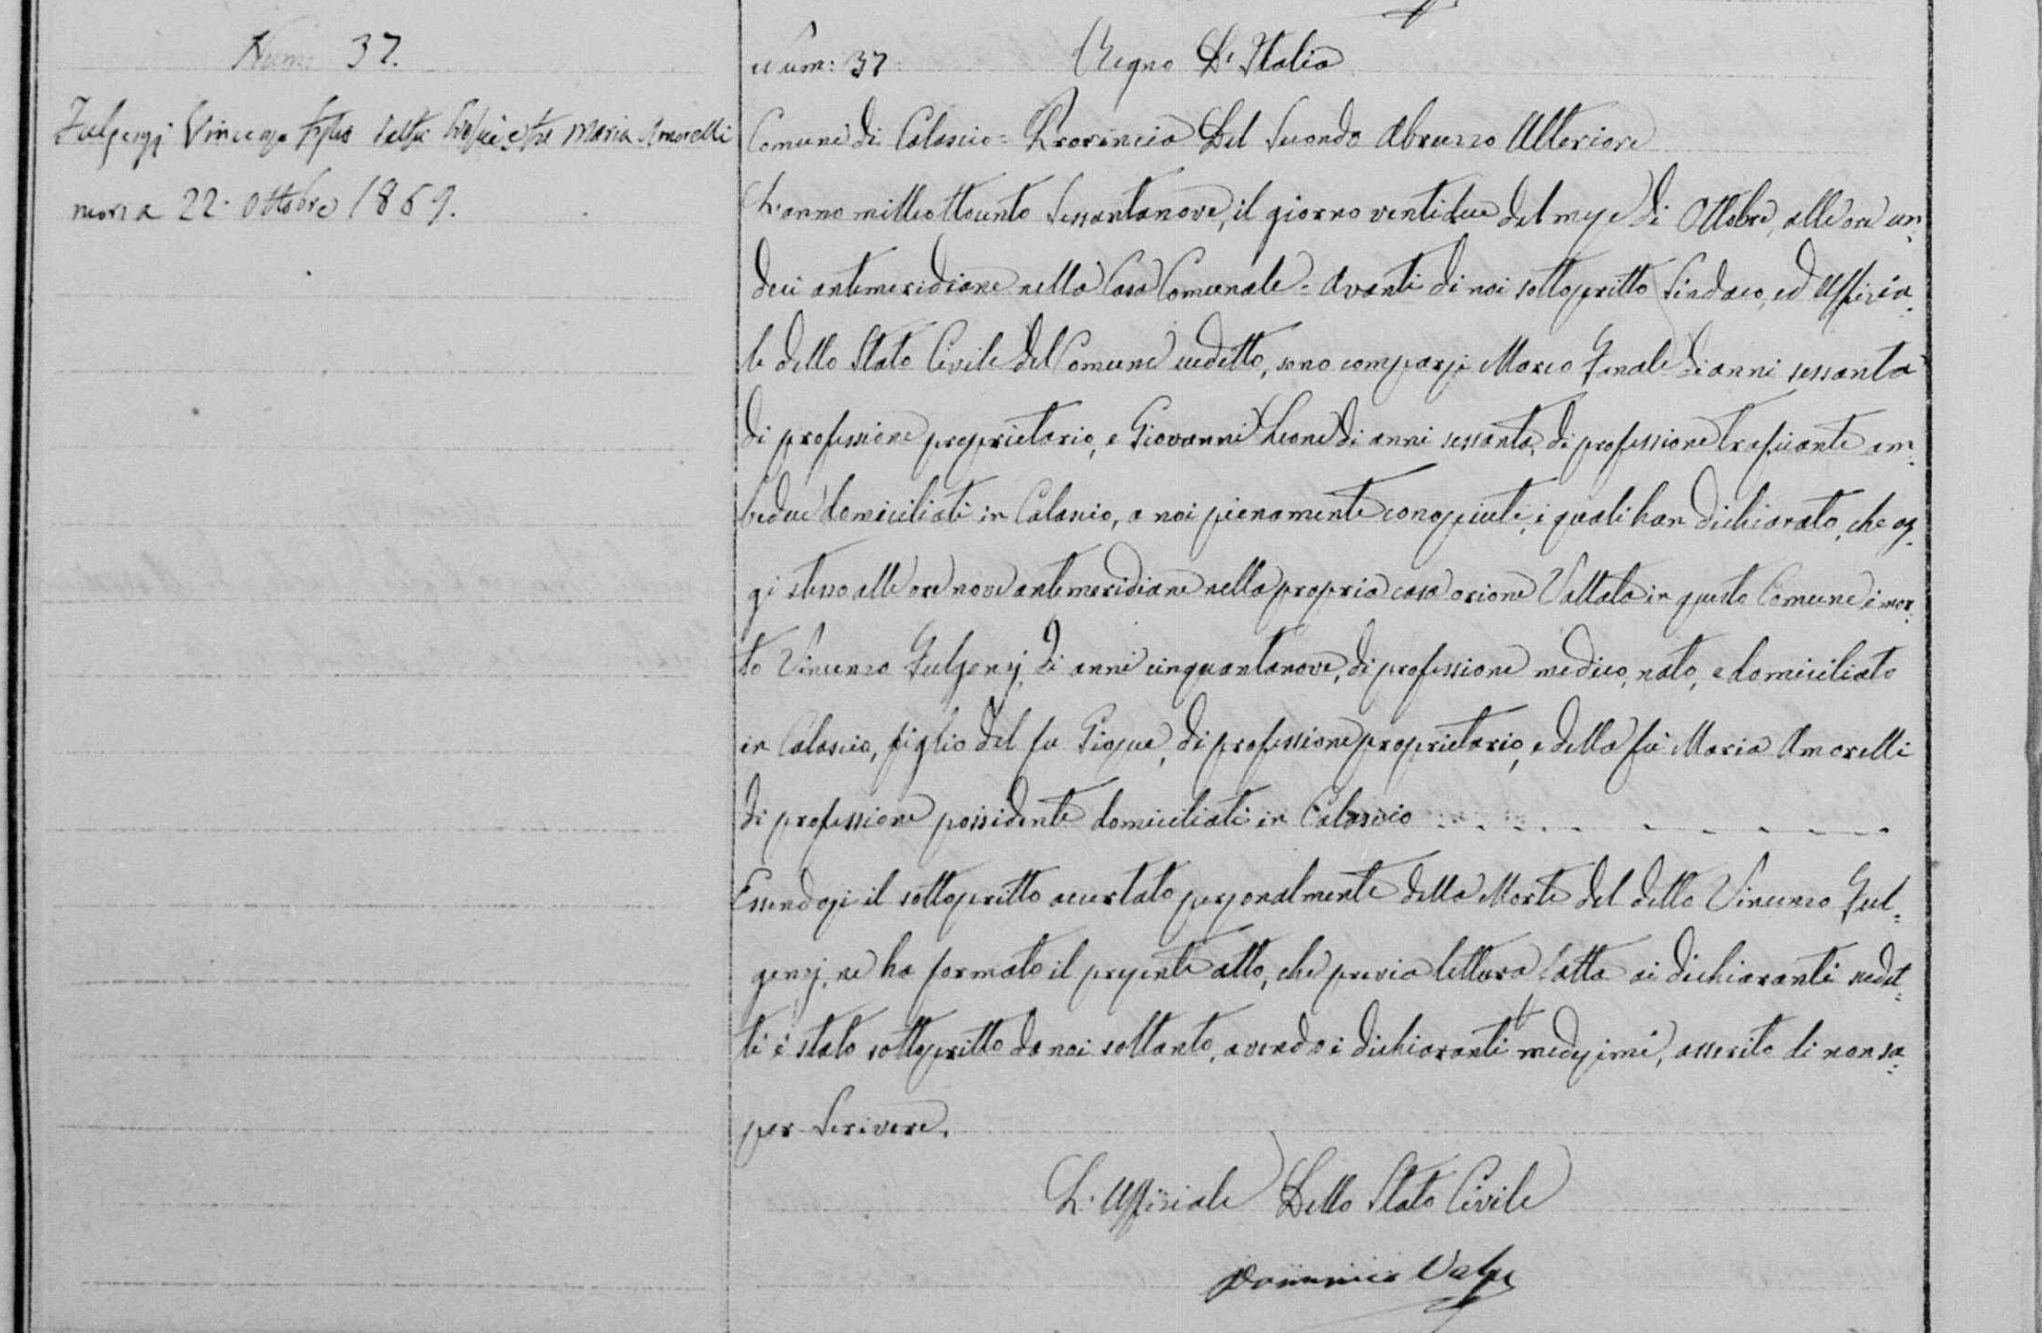 Num: 37.
Fulgenzj Vincenzo figlio del fu Giosuè e fu Maria Amorelli
morì a 22. Ottobre 1869.
Num: 37. Regno D'Italia
Comune di Calascio = Provincia Del Secondo Abruzzo Ulteriore
L'anno milleottocento Sessantanove, il giorno ventidue del mese di Ottobre, alle ore un=
deci antemeridiane nella Casa Comunale = Avanti di noi sottoscritto Sindaco, ed Uffizia=
le dello Stato Civile del Comune sudetto, sono comparsi Marco Genale di anni sessanta
di professione proprietario, e Giovanni Leone di anni sessanta, di professione traficante am=
bedue domiciliati in Calascio, a noi pienamente conosciuti, i quali han dichiarato, che og=
gi stesso alle ore nove antemeridiane nella propria casa orione Vallata in questo Comune è mor=
to Vincenzo Fulgenzj, di anni cinquantanove, di professione medico, nato, e domiciliato
in Calascio, figlio del fu Giosuè, di professione proprietario, e della fu Maria Amorelli
di professione possidente domiciliati in Calascio
Essendosi il sottoscritto accertato personalmente della Morte del detto Vincenzo Ful=
genzj, ne ha formato il presente atto, che previa lettura fatta ai dichiaranti sudet=
ti è stato sottoscritto da noi soltanto, avendo i dichiaranti medesimi, asserito di non sa=
per Scrivere.
L'Uffiziale Dello Stato Civile
Domenico